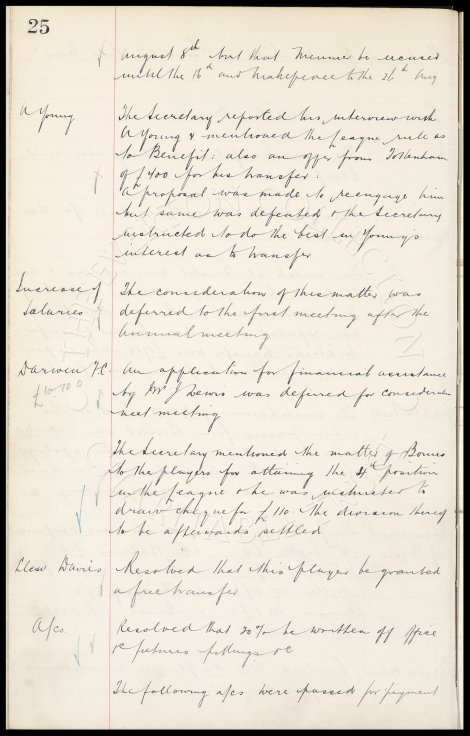 25
August 8th but that Menmer be excused
until the 16th and Makepeace to the 26th Aug
A Young
The Secretary reported his interview with
A Young & mentioned the League rule as
to Benefit: also an offer from Tottenham
of £400 for his transfer:
A proposal was made to reengage him
but same was defeated & the Secretary
instructed to do the best in Young's
interest as to transfer
Increase of
Salaries
The consideration of this matter was
deferred to the first meeting after the
annual meeting
Darwen F.C.
£10-10-0
An application for financial assistance
by Mr J Lewis was deferred for consideration
next meeting
The Secretary mentioned the matter of Bonus
to the players for attaining the 4th position
in the League & he was instructed to
draw cheque for £110 the division thereof
to be afterwards settled
Llew Davies
Resolved that this player be granted
a free transfer
A/cs.
Resolved that 20% be written off office
&c fixtures fittings &c
The following a/cs were passed for payment